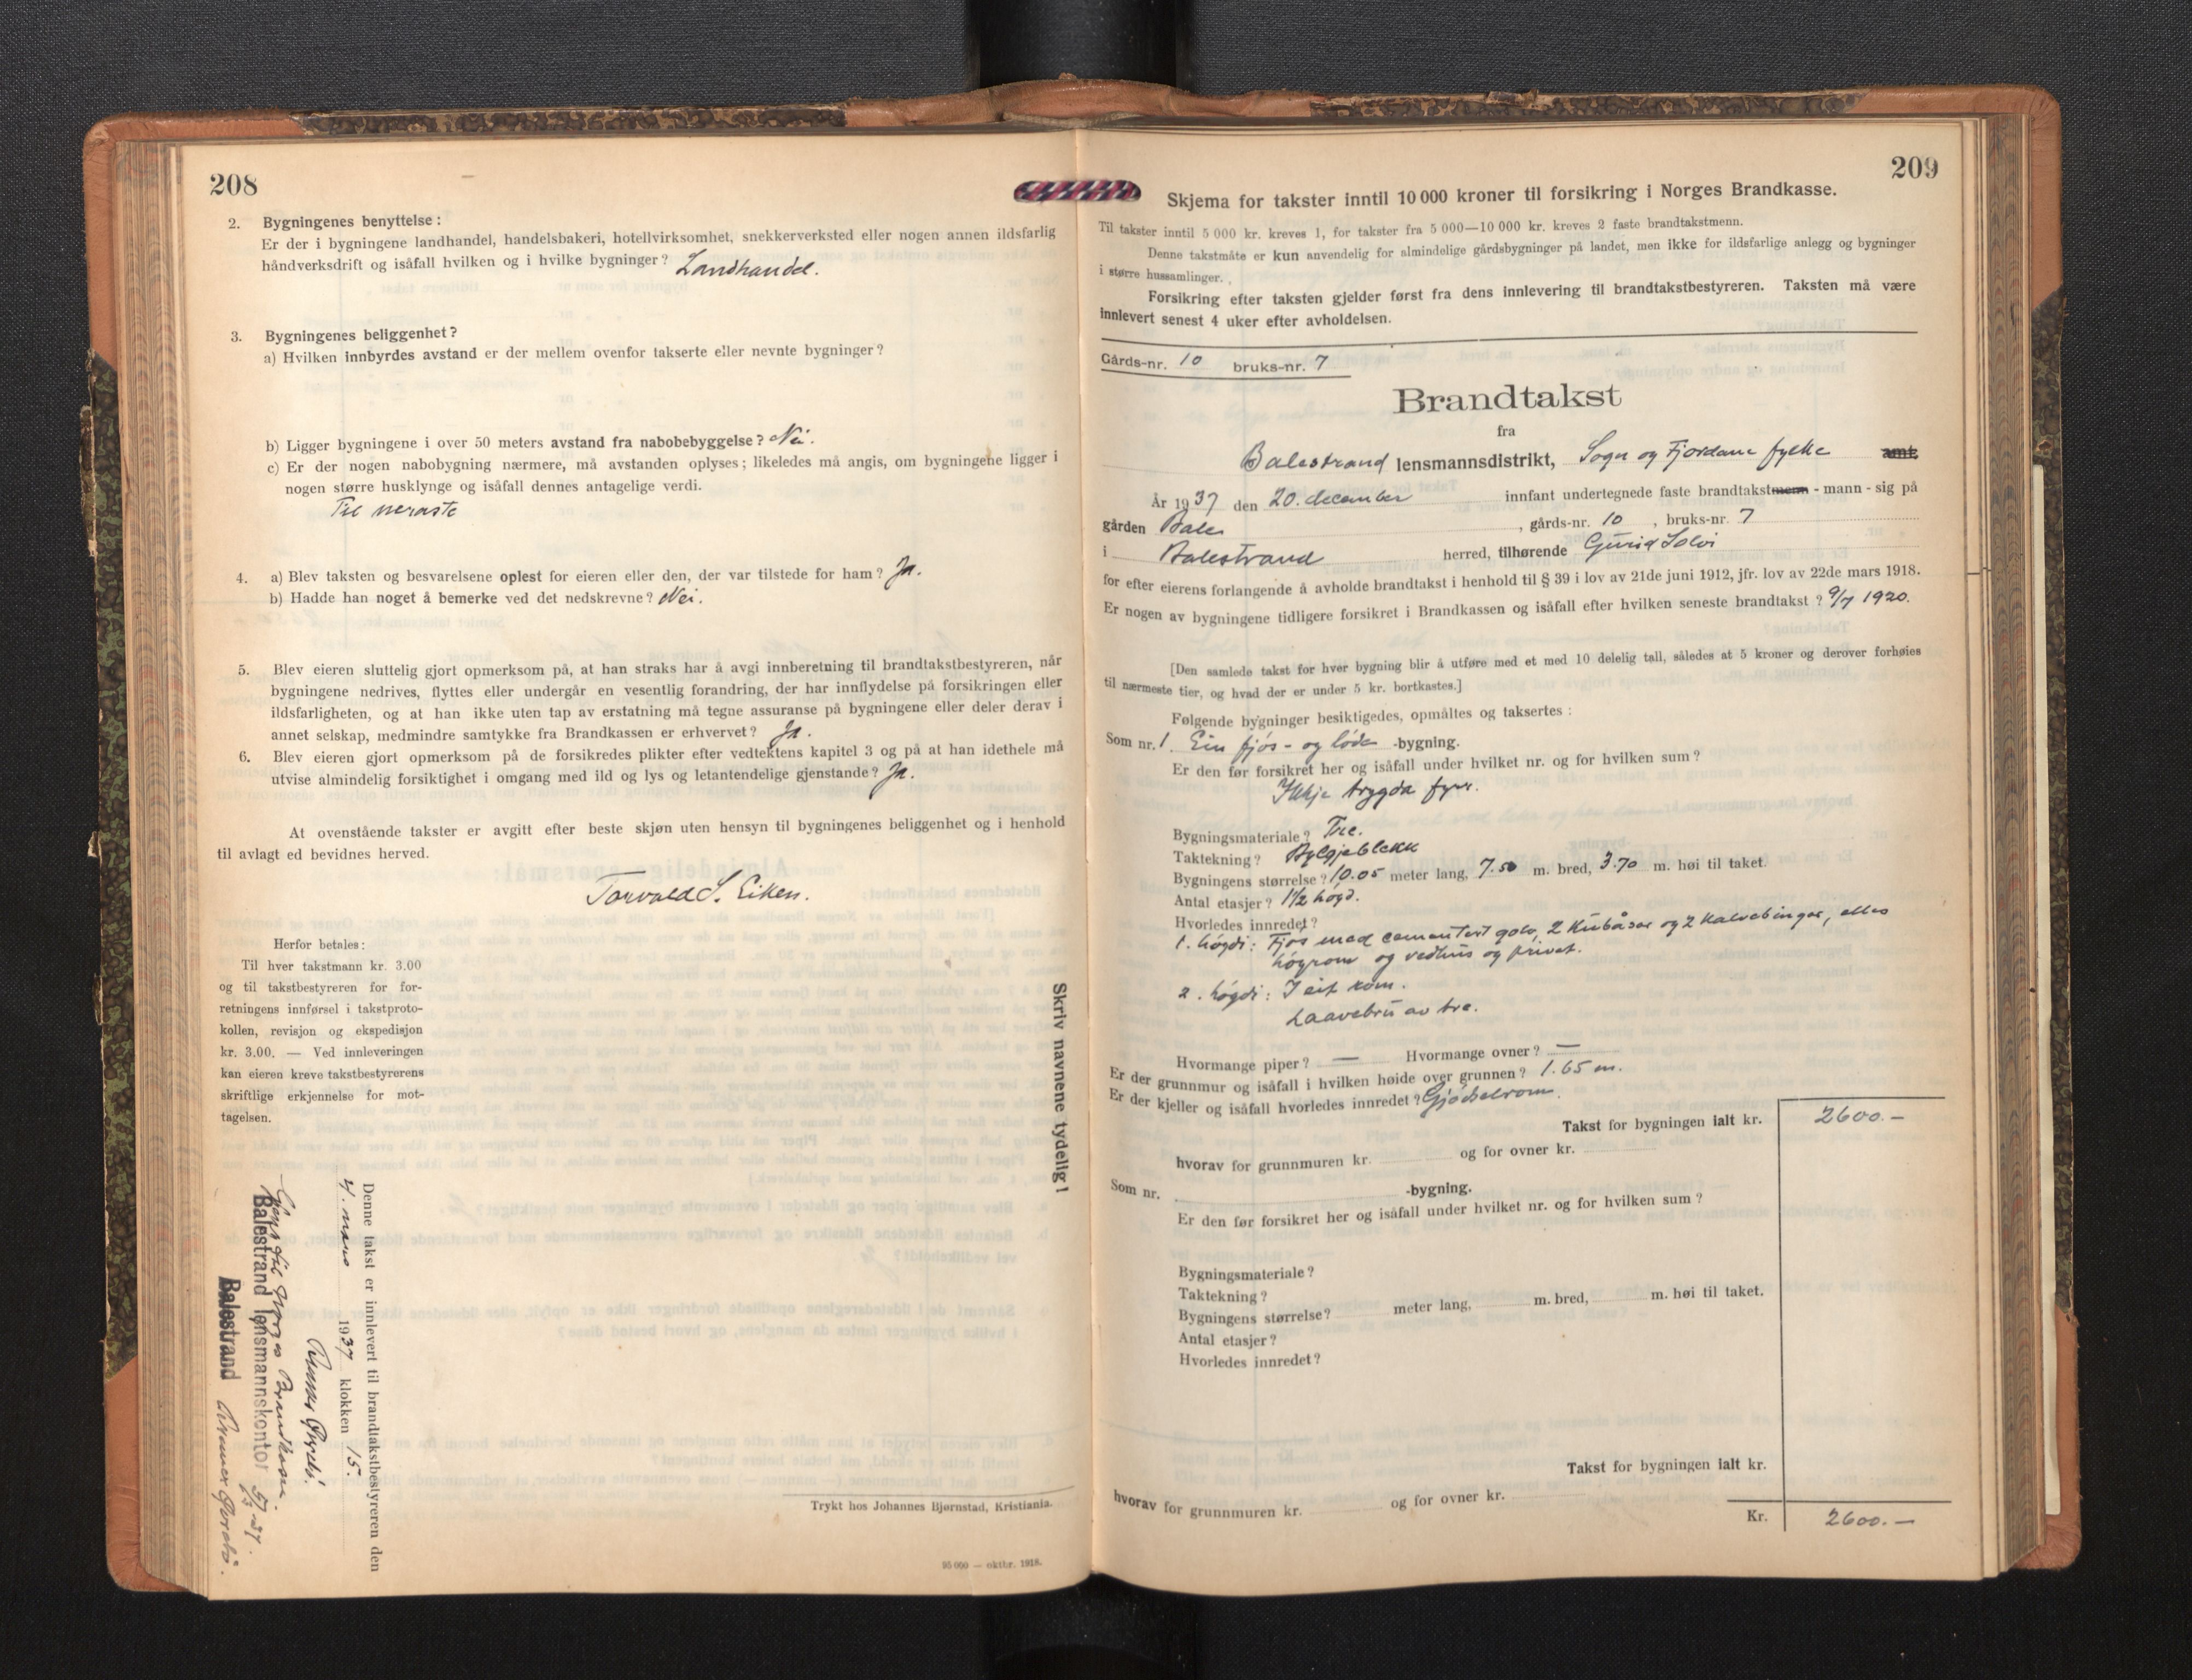 208
2. Bygningenes benyttelse:
Er der i bygningene landhandel, handelsbakeri, hotellvirksomhet, snekkerverksted eller nogen annen ildsfarlig
håndverksdrift og isåfall hvilken og i hvilke bygninger? Landhandel.
3. Bygningenes beliggenhet?
a) Hvilken innbyrdes avstand er der mellem ovenfor takserte eller nevnte bygninger?
b) Ligger bygningene i over 50 meters avstand fra nabobebyggelse? Nei.
c) Er der nogen nabobygning nærmere, må avstanden oplyses; likeledes må angis, om bygningene ligger i
nogen større husklynge og isåfall dennes antagelige verdi.
Til næraste
4. a) Blev taksten og besvarelsene oplest for eieren eller den, der var tilstede for ham? Ja.
b) Hadde han noget å bemerke ved det nedskrevne? Nei.
5. Blev eieren sluttelig gjort opmerksom på, at han straks har å avgi innberetning til brandtakstbestyreren, når
bygningene nedrives, flyttes eller undergår en vesentlig forandring, der har innflydelse på forsikringen eller
ildsfarligheten, og at han ikke uten tap av erstatning må tegne assuranse på bygningene eller deler derav i
annet selskap, medmindre samtykke fra Brandkassen er erhvervet? Ja.
6. Blev eieren gjort opmerksom på de forsikredes plikter efter vedtektens kapitel 3 og på at han idethele må
utvise almindelig forsiktighet i omgang med ild og lys og letantendelige gjenstande? Ja.
At ovenstående takster er avgitt efter beste skjøn uten hensyn til bygningenes beliggenhet og i henhold
til avlagt ed bevidnes herved.
Torvald S. Eiken.
Herfor betales:
Til hver takstmann kr. 3.00
og til takstbestyreren for for-
retningens innførsel i takstproto-
kollen, revisjon og ekspedisjon
kr. 3.00. — Ved innleveringen
kan eieren kreve takstbestyrerens
skriftlige erkjennelse for mot-
tagelsen.
Skriv navnene tydelig!
Denne takst er innlevert til brandtakstbestyreren den
4. mars 1937 klokken 15.
Gjenpart til Norges Brandkasse.
Balestrand lensmannskontor 5/3-37.
Balestrand
Trykt hos Johannes Bjørnstad, Kristiania.
95 000 — oktbr. 1918.
209
Skjema for takster inntil 10 000 kroner til forsikring i Norges Brandkasse.
Til takster inntil 5 000 kr. kreves 1, for takster fra 5 000—10 000 kr. kreves 2 faste brandtakstmenn.
Denne takstmåte er kun anvendelig for almindelige gårdsbygninger på landet, men ikke for ildsfarlige anlegg og bygninger
i større hussamlinger.
Forsikring efter taksten gjelder først fra dens innlevering til brandtakstbestyreren. Taksten må være
innlevert senest 4 uker efter avholdelsen.
Gårds-nr. 10 bruks-nr. 7
Brandtakst
fra
Balestrand lensmannsdistrikt, Sogn og Fjordane fylke amt
År 1937 den 20. december innfant undertegnede faste brandtakstmenn - mann - sig på
gården Bale, gårds-nr. 10, bruks-nr. 7
i Balestrand herred, tilhørende Gurid Solvi
for efter eierens forlangende å avholde brandtakst i henhold til § 39 i lov av 21de juni 1912, jfr. lov av 22de mars 1918.
Er nogen av bygningene tidligere forsikret i Brandkassen og isåfall efter hvilken seneste brandtakst? 9/7 1920.
[Den samlede takst for hver bygning blir å utføre med et med 10 delelig tall, således at 5 kroner og derover forhøies
til nærmeste tier, og hvad der er under 5 kr. bortkastes.]
Følgende bygninger besiktigedes, opmåltes og taksertes:
Som nr. 1. Ein fjós- og lóde -bygning.
Er den før forsikret her og isåfall under hvilket nr. og for hvilken sum?
Ikkje trygda fyrr.
Bygningsmateriale? Tre.
Taktekning? Bylgjeblekk
Bygningens størrelse? 10.05 meter lang, 7.50 m. bred, 3.70 m. høi til taket.
Antal etasjer? 1 1/2 högd.
Hvorledes innredet?
1. högdi: Fjós med cementert golv, 2 Kubåsar og 2 Kalvebingar, elles
höyrom og vedhus og privet.
2. högdi: I eit rom.
Laavebru av tre.
Hvormange piper? — Hvormange ovner? —
Er der grunnmur og isåfall i hvilken høide over grunnen? 1.65 m.
Er der kjeller og isåfall hvorledes innredet? Gjödselrom.
Takst for bygningen ialt kr. 2600.—
hvorav for grunnmuren kr. og for ovner kr.
Som nr. -bygning.
Er den før forsikret her og isåfall under hvilket nr. og for hvilken sum?
Bygningsmateriale?
Taktekning?
Bygningens størrelse? meter lang, m. bred, m. høi til taket.
Antal etasjer?
Hvorledes innredet?
Takst for bygningen ialt kr.
hvorav for grunnmuren kr. og for ovner kr.
Kr. 2600.—